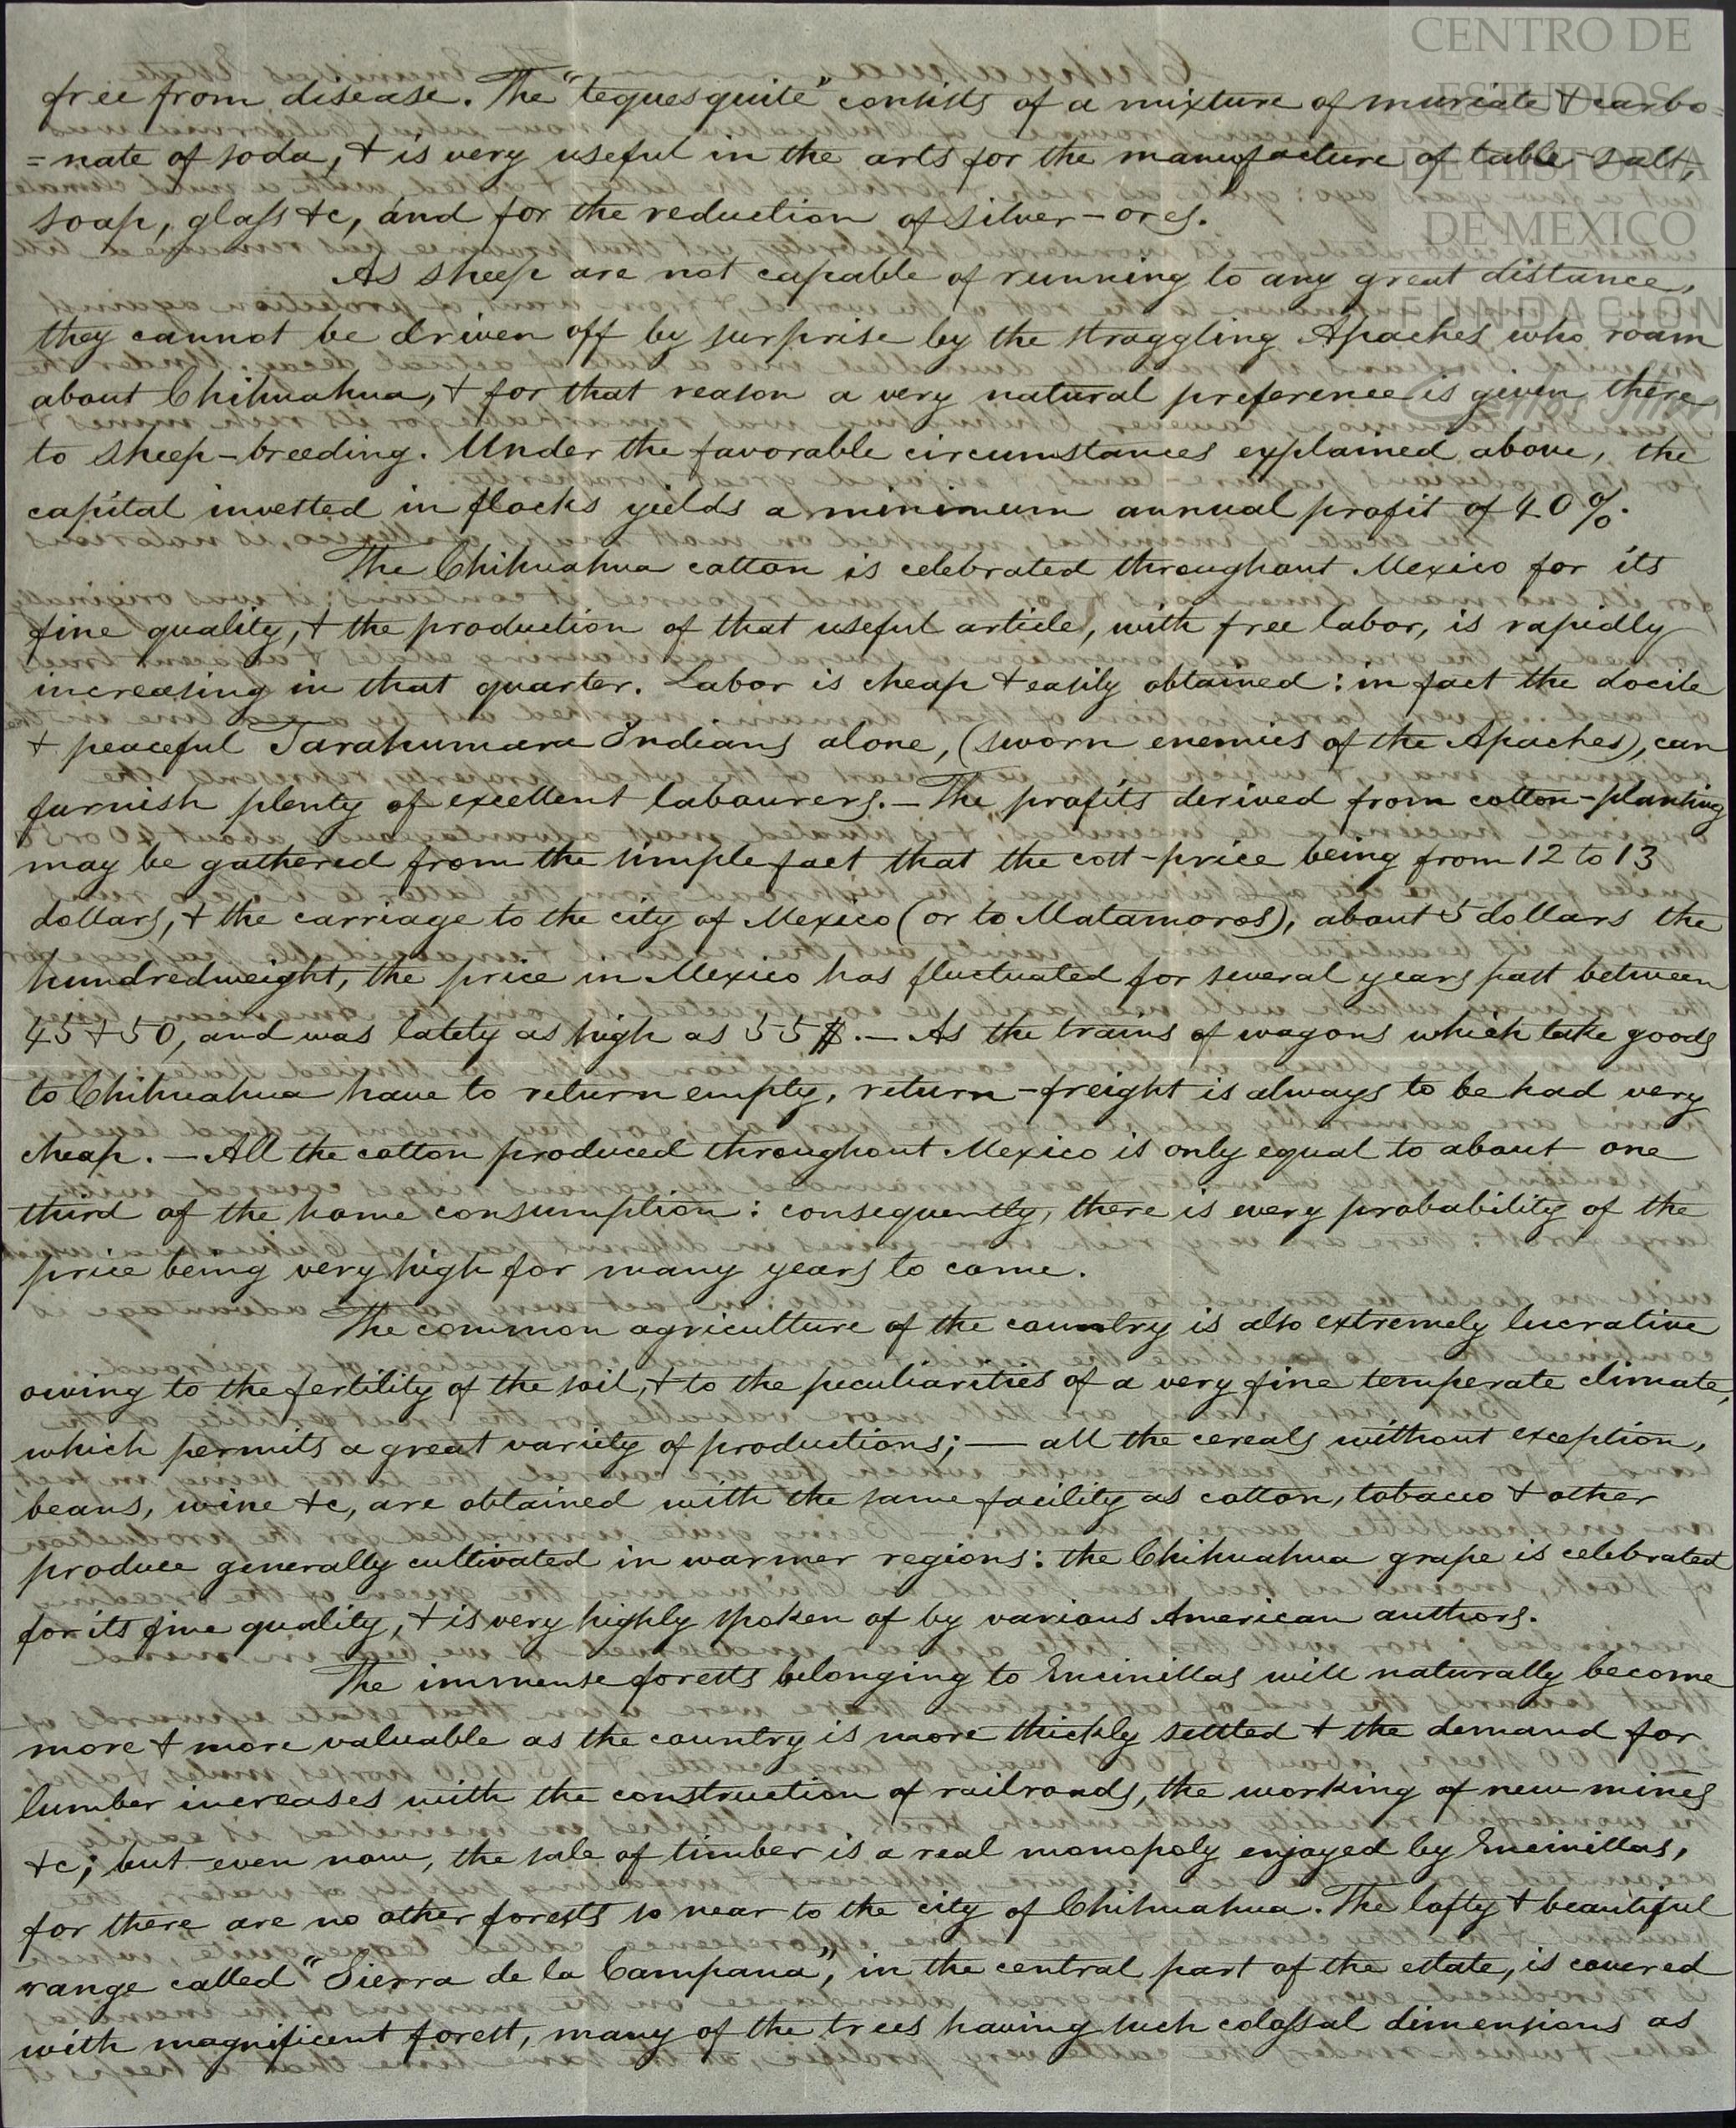 CENTRO DE
ESTUDIOS
DE HISTORIA
DE MEXICO
FUNDACION
free from disease. The "tequesquite" consists of a mixture of muriate & carbo=
=nate of soda, & is very useful in the arts for the manufacture of table-salt,
soap, glass &c, and for the reduction of silver-ores.
As sheep are not capable of running to any great distance,
they cannot be driven off by surprise by the straggling Apaches who roam
about Chihuahua, & for that reason a very natural preference is given there
to sheep-breeding. Under the favorable circumstances explained above, the
capital invested in flocks yields a minimum annual profit of 40%.
The Chihuahua cotton is celebrated throughout Mexico for its
fine quality, & the production of that useful article, with free labor, is rapidly
increasing in that quarter. Labor is cheap & easily obtained: in fact the docile
& peaceful Tarahumara Indians alone, (sworn enemies of the Apaches), can
furnish plenty of excellent labourers. — The profits derived from cotton-planting
may be gathered from the simple fact that the cost-price being from 12 to 13
dollars, & the carriage to the city of Mexico (or to Matamoros), about 5 dollars the
hundredweight, the price in Mexico has fluctuated for several years past between
45 & 50, and was lately as high as 55 $. — As the trains of wagons which take goods
to Chihuahua have to return empty, return-freight is always to be had very
cheap. — All the cotton produced throughout Mexico is only equal to about one
third of the home consumption: consequently, there is every probability of the
price being very high for many years to come.
The common agriculture of the country is also extremely lucrative
owing to the fertility of the soil, & to the peculiarities of a very fine temperate climate,
which permits a great variety of productions; — all the cereals without exception,
beans, wine &c, are obtained with the same facility as cotton, tobacco & other
produce generally cultivated in warmer regions: the Chihuahua grape is celebrated
for its fine quality, & is very highly spoken of by various American authors.
The immense forests belonging to Encinillas will naturally become
more & more valuable as the country is more thickly settled & the demand for
lumber increases with the construction of railroads, the working of new mines
&c; but even now, the sale of timber is a real monopoly enjoyed by Encinillas,
for there are no other forests so near to the city of Chihuahua. The lofty & beautiful
range called "Sierra de la Campana", in the central part of the estate, is covered
with magnificent forest, many of the trees having such colossal dimensions as